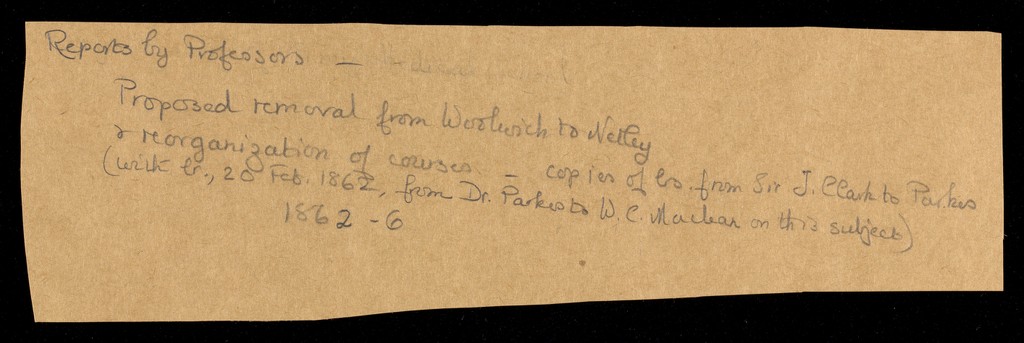 Reports by Professors –
Proposed removal from Woolwich to Netley
& reorganization of courses – copies of ls. from Sir J. Clark to Parkes
(with lr., 20 Feb. 1862, from Dr. Parkes to W. C. Maclean on this subject)
1862 - 6